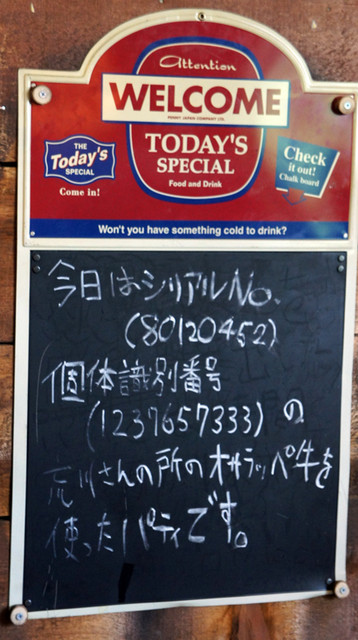 Attention
WELCOME
TODAY'S
SPECIAL
Food and Drink
THE
Today's
SPECIAL
Come in!
Check
it out!
Chalk board
Won't you have something cold to drink?
今日はシリアルNo.
(80120452)
個体識別番号
(1237657333)の
荒川さんの所のオサラッペ牛を
使ったパティです。